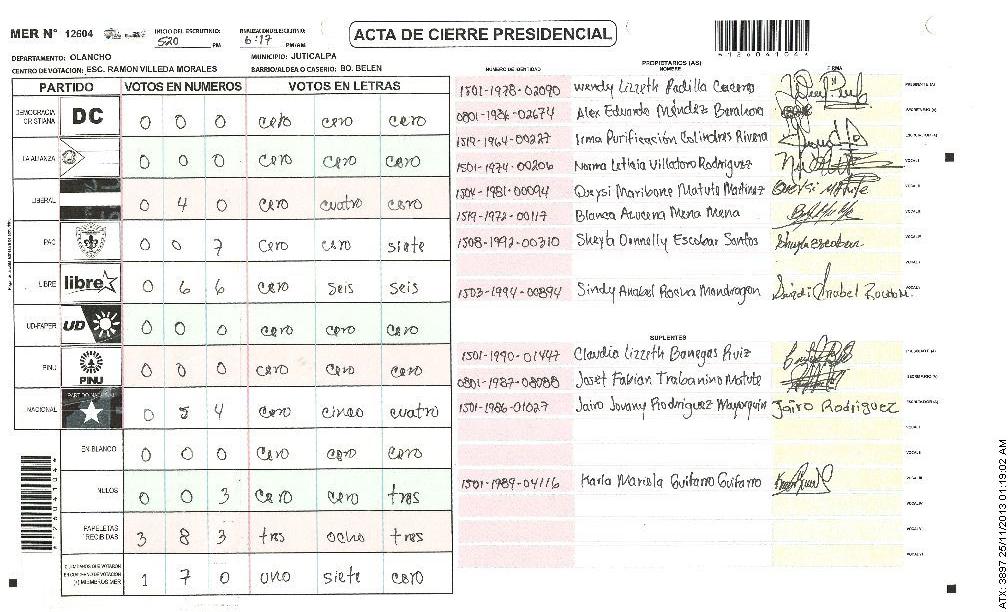 MER N° 12604 INICIO DEL ESCRUTINIO: 520 PM FINALIZACION ESCRUTINIO: 6:17 PM/AM
ACTA DE CIERRE PRESIDENCIAL
DEPARTAMENTO: OLANCHO MUNICIPIO: JUTICALPA
CENTRO DE VOTACION: ESC. RAMON VILLEDA MORALES BARRIO/ALDEA O CASERIO: BO. BELEN
PARTIDO VOTOS EN NUMEROS VOTOS EN LETRAS
DEMOCRACIA CRISTIANA DC 0 0 0 cero cero cero
LA ALIANZA 0 0 0 cero cero cero
LIBERAL 0 4 0 cero cuatro cero
PAC 0 0 7 cero cero siete
LIBRE libre 0 6 6 cero seis seis
UD-FAPER UD 0 0 0 cero cero cero
PINU PINU 0 0 0 cero cero cero
NACIONAL PARTIDO NACIONAL 0 5 4 cero cinco cuatro
EN BLANCO 0 0 0 cero cero cero
NULOS 0 0 3 cero cero tres
PAPELETAS RECIBIDAS 3 8 3 tres ocho tres
1 7 0 uno siete cero
PROPIETARIOS (AS)
NUMERO DE IDENTIDAD NOMBRE FIRMA
1501-1978-02090 Wendy Lizzeth Padilla Caceres
0801-1986-02674 Alex Eduardo Méndez Barahona
1519-1964-00227 Irma Purificación Colindres Rivera
1501-1974-00206 Norma Leticia Villatoro Rodriguez
1504-1981-00094 Maribone Matute Martinez
1519-1972-00117 Blanca Azucena Mena Mena
1508-1992-00310 Sheyla Donnelly Escobar Santos Sheyla Escobar
1503-1994-00894 Sindi Anabel Mondragon
SUPLENTES
1501-1990-01447 Claudia Lizzeth Banegas Ruiz
0801-1987-08088 Joset Fabian Trabanino Matute
1501-1986-01027 Jairo Jovany Rodriguez Mayorquin Jairo Rodriguez
1501-1989-04116 Karla Mariela Guifarro Guifarro
ATX: 3897 25/11/2013 01:19:02 AM